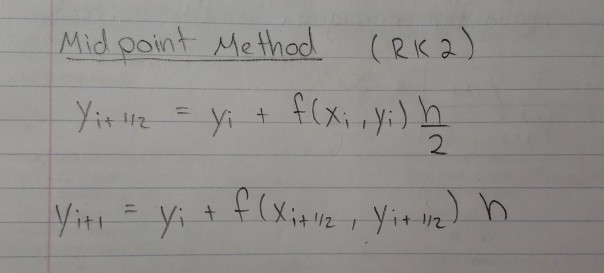 Midpoint Method (RK2)
y_{i+1/2} = y_i + f(x_i, y_i) h/2
y_{i+1} = y_i + f(x_{i+1/2}, y_{i+1/2}) h